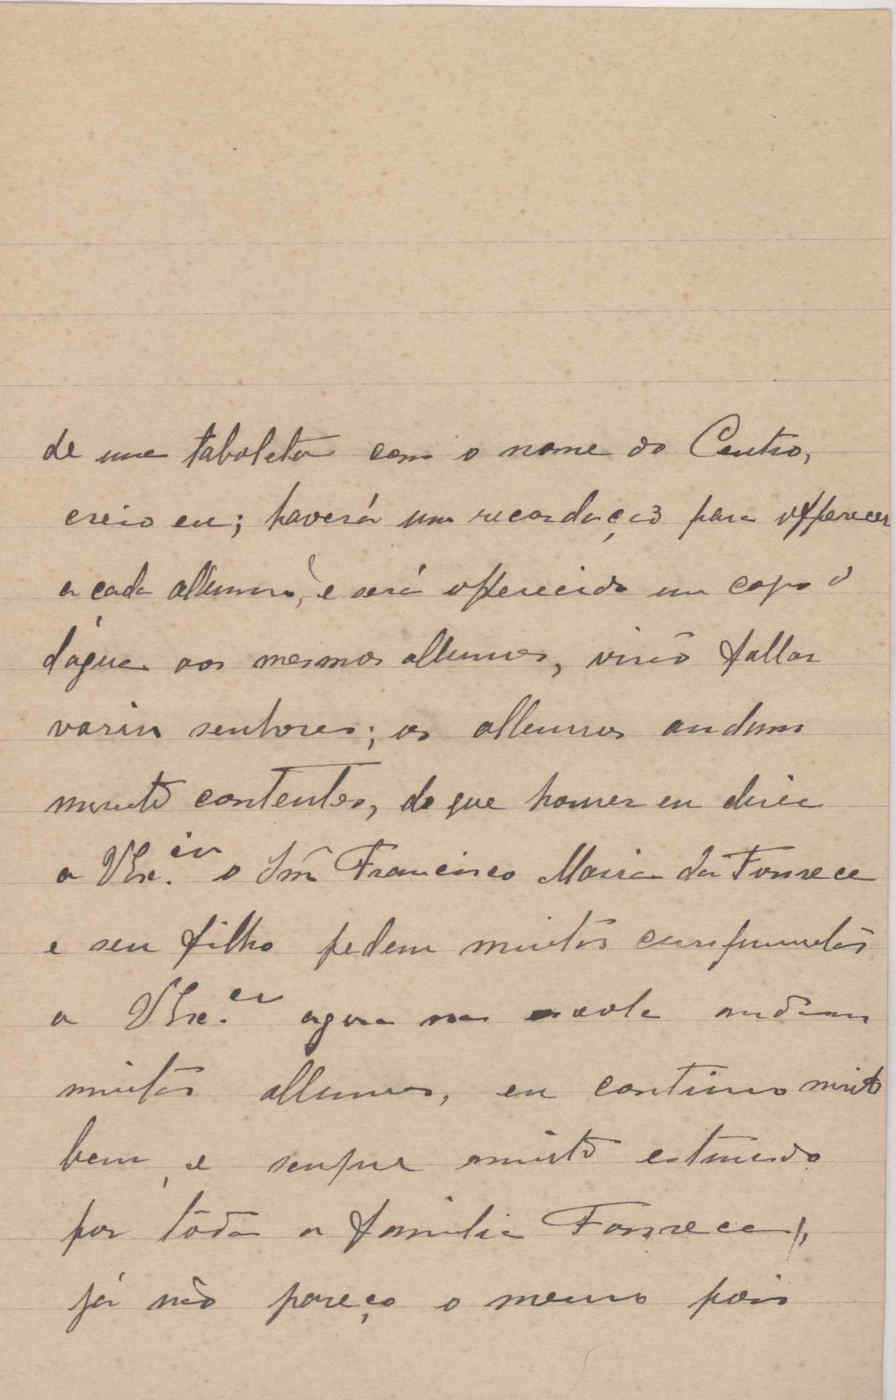 de uma taboleta com o nome do Centro,
creio eu; haverá um recordação para offerecer
a cada allumno, e será offerecido um copo d
d'agua aos mesmos allumnos, virão fallar
varios senhores; os allumnos andam
muito contentes, do que houver eu direi
a VExc.ia o Snr Francisco Maria da Fonseca
e seu filho pedem muitos cumprimentos
a VExc.ia agora na escola andam
muitos allumnos, eu continuo muito
bem, e sempre muito estimado
por toda a familia Fonseca,
já não pareço o mesmo pois